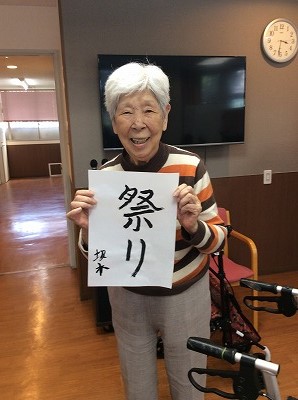 祭り
坂本